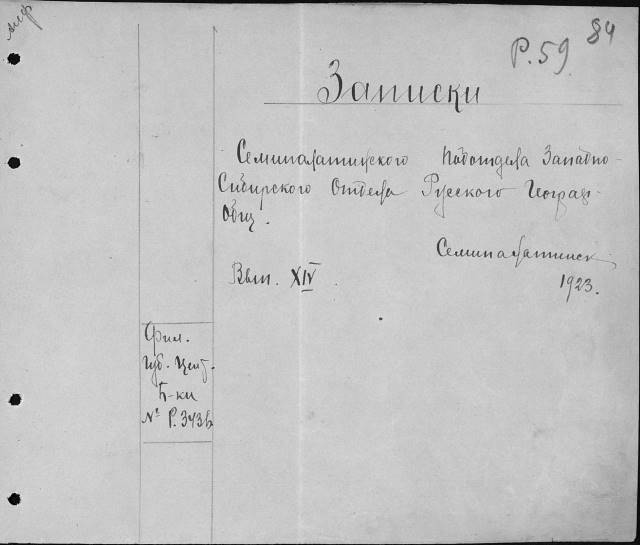 Р.59 84
Записки
Семипалатинского Подотдела Западно-
Сибирского Отдела Русского Географ.
Общ.
Семипалатинск
1923.
Вып. XIV
Фил.
Губ. Цент.
Б-ки
№ Р.343в